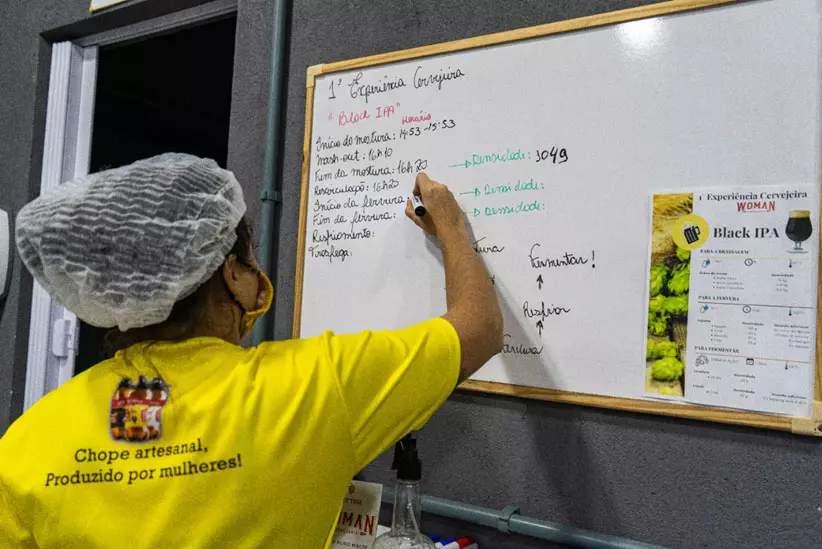 1ª Experiência Cervejeira
"Black IPA"
Horário
Início da mostura: 14:53-15:53
mash-out: 16h10
Fim da mostura: 16h20
Recirculação: 16h20
Início da fervura:
Fim da fervura:
Resfriamento:
Trasfega:
→Densidade: 1049
→Densidade:
→Densidade:
Fermentar!
Resfriar
1ª Experiência Cervejeira
WOMAN
Black IPA
PARA A BRASSAGEM
PARA A FERVURA
PARA FERMENTAR
Chope artesanal,
Produzido por mulheres!
WOMAN
PURO MALTE